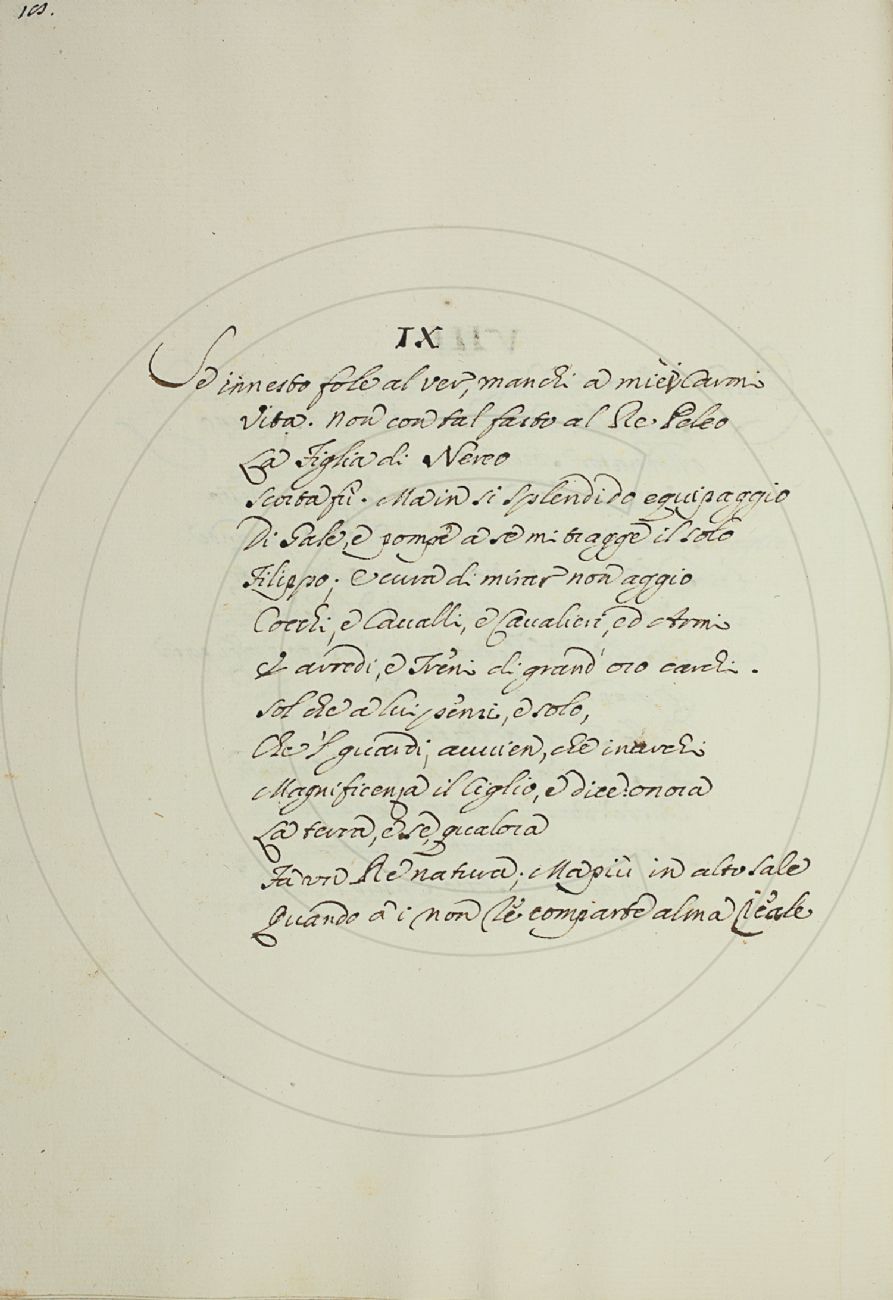 IX
Se innesto fole al ver, manchi a miei Carmi
Vita. Non con tal fasto al Re Peleo
La Figlia di Nereo
Scorta fù. Ma in si splendido equipaggio
Di Gale, e pompe a se mi tragge il solo
Filippo; E cura di mirar non aggio
Cocchi, e Cavalli, e Cavalieri, ed Armi
E arredi, e Treni di grand'oro carchi.
Sol che a lui pensi, e solo,
Che 'l guardi, avvien, che inarchi
Magnificenza il Ciglio, e dice: onora
La terra, e se, qualora
Fa un Re natura; Ma più in alto sale
Quando a i non Re comparte alma Reale